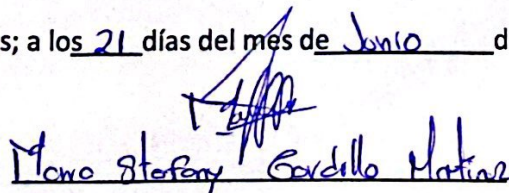 s; a los 21 días del mes de Junio d
Stefany Gordillo Martinez